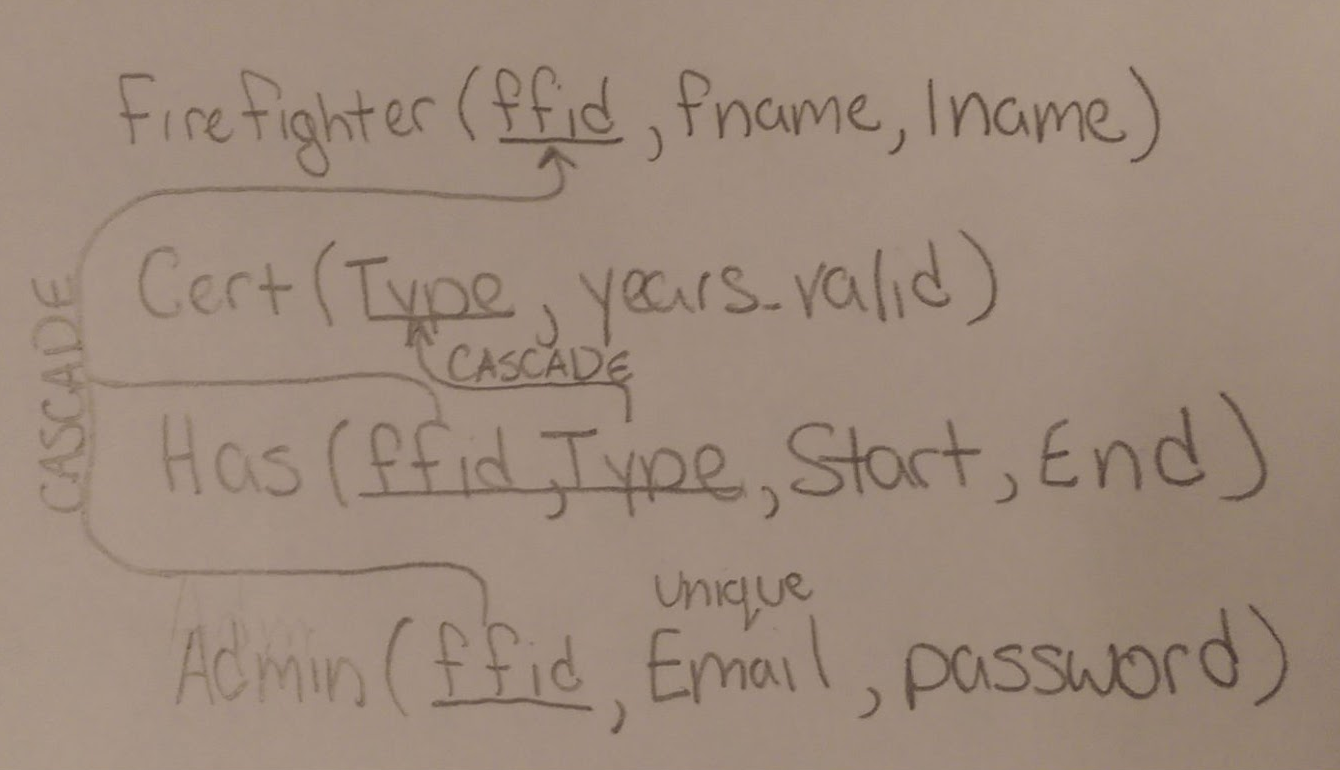 Firefighter (ffid, fname, lname)
Cert (Type, years_valid)
CASCADE
CASCADE
Has (ffid, Type, Start, End)
unique
Admin (ffid, Email, password)